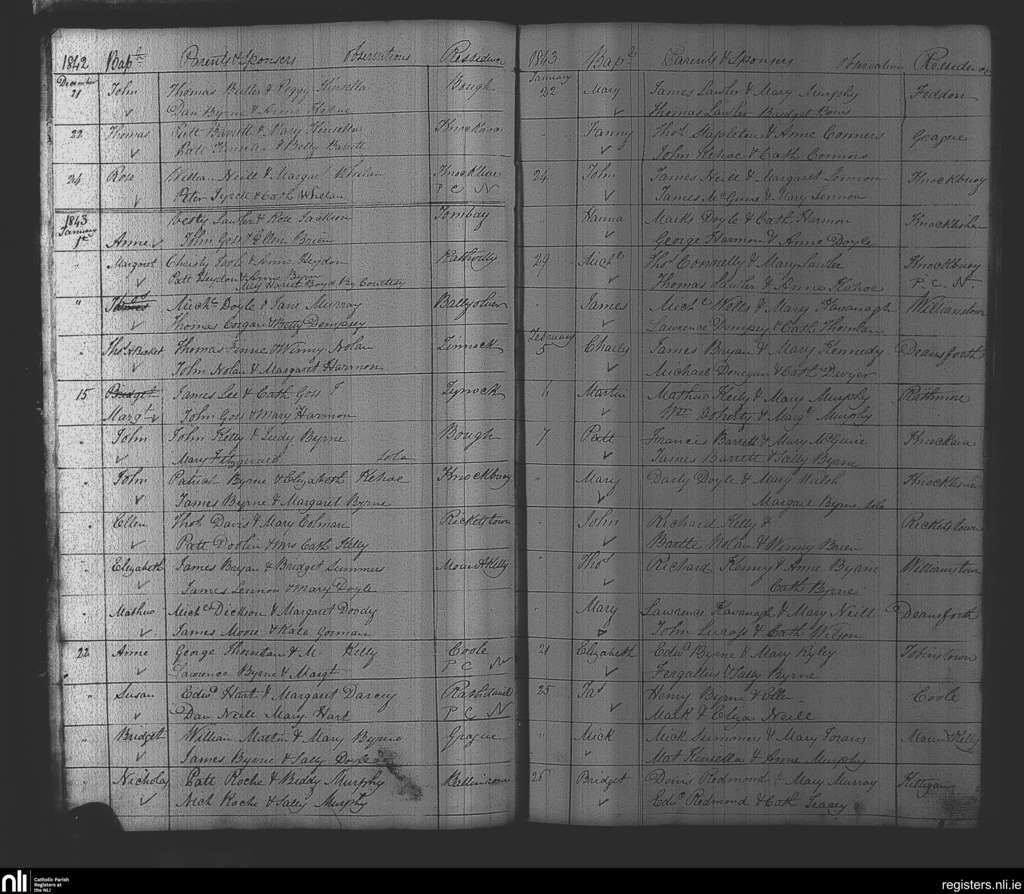 1842 Bapd Parents & Sponsors Observations Residence
December
21 John Thomas Butler & Peggy Kinsella Bough
Dan Byrne &
22 Thomas Patt Barrett & Mary Kinsella Knockana
Patt & Betty Barrett
24 Rose William Neill & Margaret Whelan
Peter Tyrell & Cath Whelan P C N
1843
January
1st Anne Lawler & Rose Jackson Tombay
John Goss & Ellen Brien
" Margaret Christy & Anne Heydon Rathvilly
Patt Heydon & Anne Byrn
Boyd By Courtesy
" Michl Doyle & Jane Murray Ballyoliver
Thomas Corgan & Betty Dempsey
" Thos Thomas & Winny Nolan Linnock
John Nolan & Margaret Harmon
15 Bridget James Lee & Cath Goss Lynock
Margt John Goss & Mary Harmon
" John John Kelly & Judy Byrne Bough
Mary Fitzgerald Sola
" John Patrick Byrne & Elizabeth Kehoe Knockbuoy
James Byrne & Margaret Byrne
" Ellen Thos Davis & Mary Colman Ricketstown
Patt Doolin & Mrs Cath Kelly
" Elizabeth James Bryan & Bridget Summers Mount Kelly
James Lennon & Mary Doyle
" Mathew Michl Dickson & Margaret Doody
James Moore & Kate Gorman
22 Anne George Thornton & M Kelly Coole
Lawrence Byrne & Margt P C N
" Susan Edwd Hart & Margaret Darcey
Dan Neill Mary Hart P C N
" Bridget William Martin & Mary Byrne Grague
James Byrne & Sally
" Nicholas Patt Roche & Biddy Murphy
Nich Roche & Sally Murphy
1843 Bapd Parents & Sponsors Observation Residence
January
22 Mary James Lawler & Mary Murphy Feddon
Thomas Lawler Bridget
" Fanny Thos Stapleton & Anne Connors Grague
John Kehoe & Cath Connors
24 John James Neill & Margaret Lennon Knockbuoy
James McGuire & Mary Lennon
" Hanna Marks Doyle & Cath Harmon
George Harmon & Anne Doyle
29 Michl Thos Connelly & Mary Lawler Knockbuoy
Thomas Lawler & Anne Kehoe P. C. N.
" James Michl Wells & Mary Kavanagh Williamstown
Lawrence Dempsey & Cath Thornton
February
5 Charles James Bryan & Mary Kennedy Deansforth
Michael Donegan & Cath Dwyer
6 Martin Mathew Keily & Mary Murphy Rathmore
Wm Doherty & Margt Murphy
7 Patt Francis Barrett & Mary McGuire Knockana
James Barrett & Sally Byrne
" Mary Darby Doyle & Mary Walsh
Margaret Byrne Sola
" John Richard Kelly & Ricketstown
Bartle Nolan & Winny Brien
" Thos Richard Kenny & Anne Byrne Williamstown
Cath Byrne
" Mary Lawrence Kavanagh & Mary Neill Deansforth
John & Cath Wilson
21 Elizabeth Edwd Byrne & Mary Ryley Tobinstown
Fergallus & Sally Byrne
25 Jas Henry Byrne & Ellen Coole
Mark & Eliza Neill
" Mick Mick Summons & Mary Mount Kelly
Mat Kinsella & Anne Murphy
26 Bridget Denis Redmond & Mary Murray
Edwd Redmond & Cath Tracey
nli Catholic Parish
Registers at
the NLI
registers.nli.ie